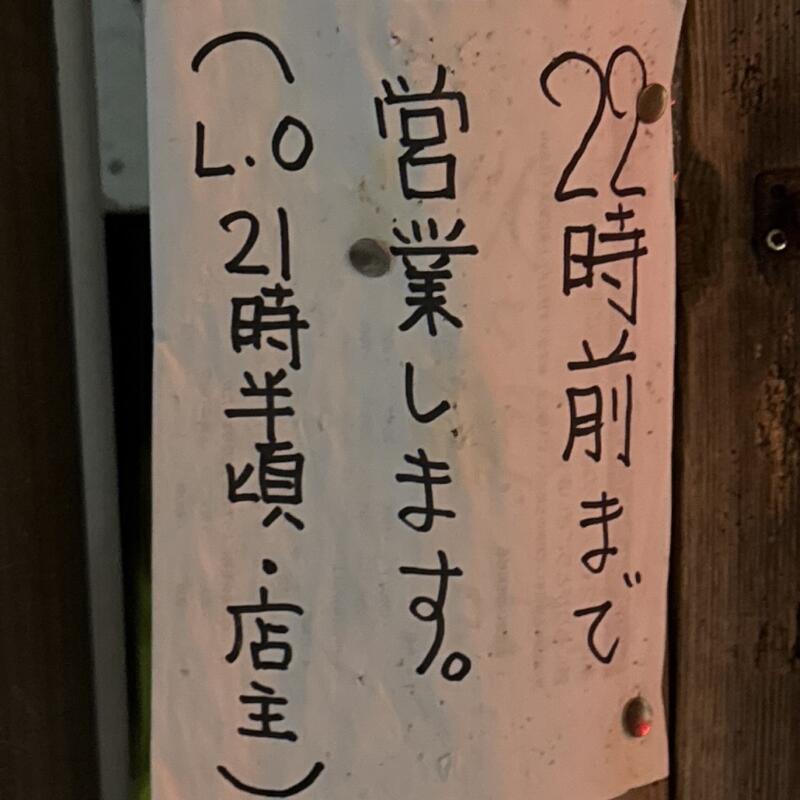 22時前まで
営業します。
(L.O 21時半頃・店主)